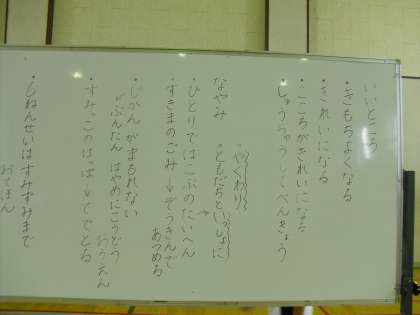 いいところ
・きもちよくなる
・きれいになる
・こころがきれいになる
・しゅうちゅうしてべんきょう
なやみ
やくわり
ともだちといっしょに
・ひとりではこぶのたいへん
・すきまのごみ→ぞうきんで
あつめる
・じかんがまもれない
ぶんたん はやめにこうどう
おうえん
・すみっこのはっぱ→てでとる
・6ねんせいはすみずみまで
おてほん